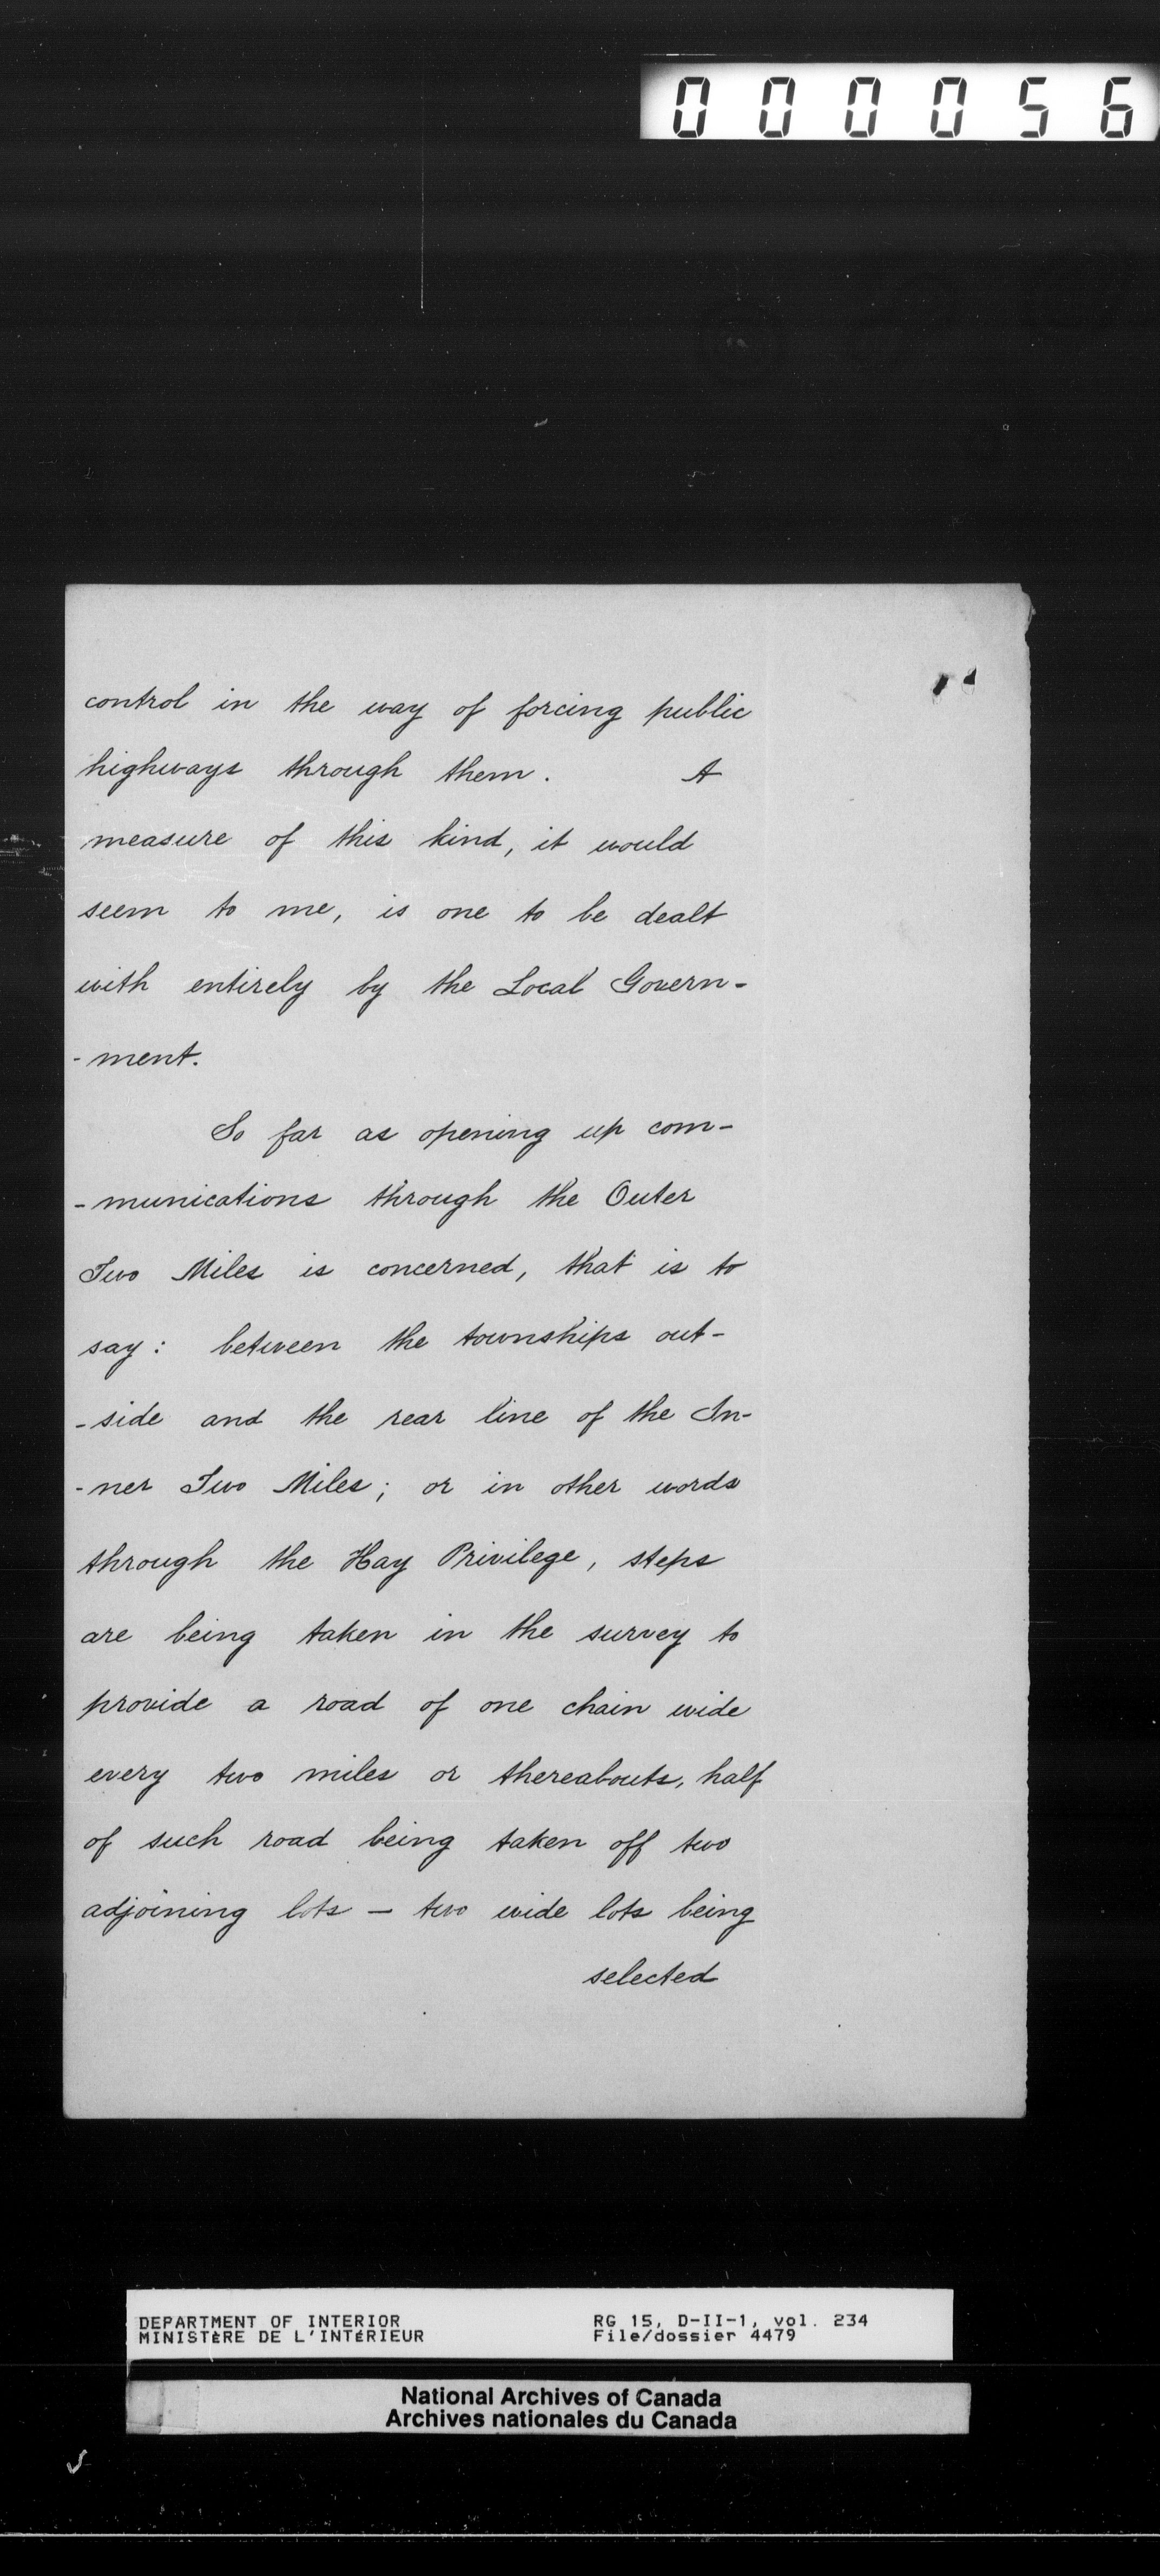 000056
control in the way of forcing public
highways through them. A
measure of this kind, it would
seem to me, is one to be dealt
with entirely by the Local Govern-
-ment.
So far as opening up com-
-munications through the Outer
Two Miles is concerned, that is to
say: between the townships out-
-side and the rear line of the In-
-ner Two Miles; or in other words
through the Hay Privilege, steps
are being taken in the survey to
provide a road of one chain wide
every two miles or thereabouts, half
of such road being taken off two
adjoining lots — two wide lots being
selected
DEPARTMENT OF INTERIOR RG 15, D-II-1, vol. 234
MINISTÈRE DE L'INTÉRIEUR File/dossier 4479
National Archives of Canada
Archives nationales du Canada